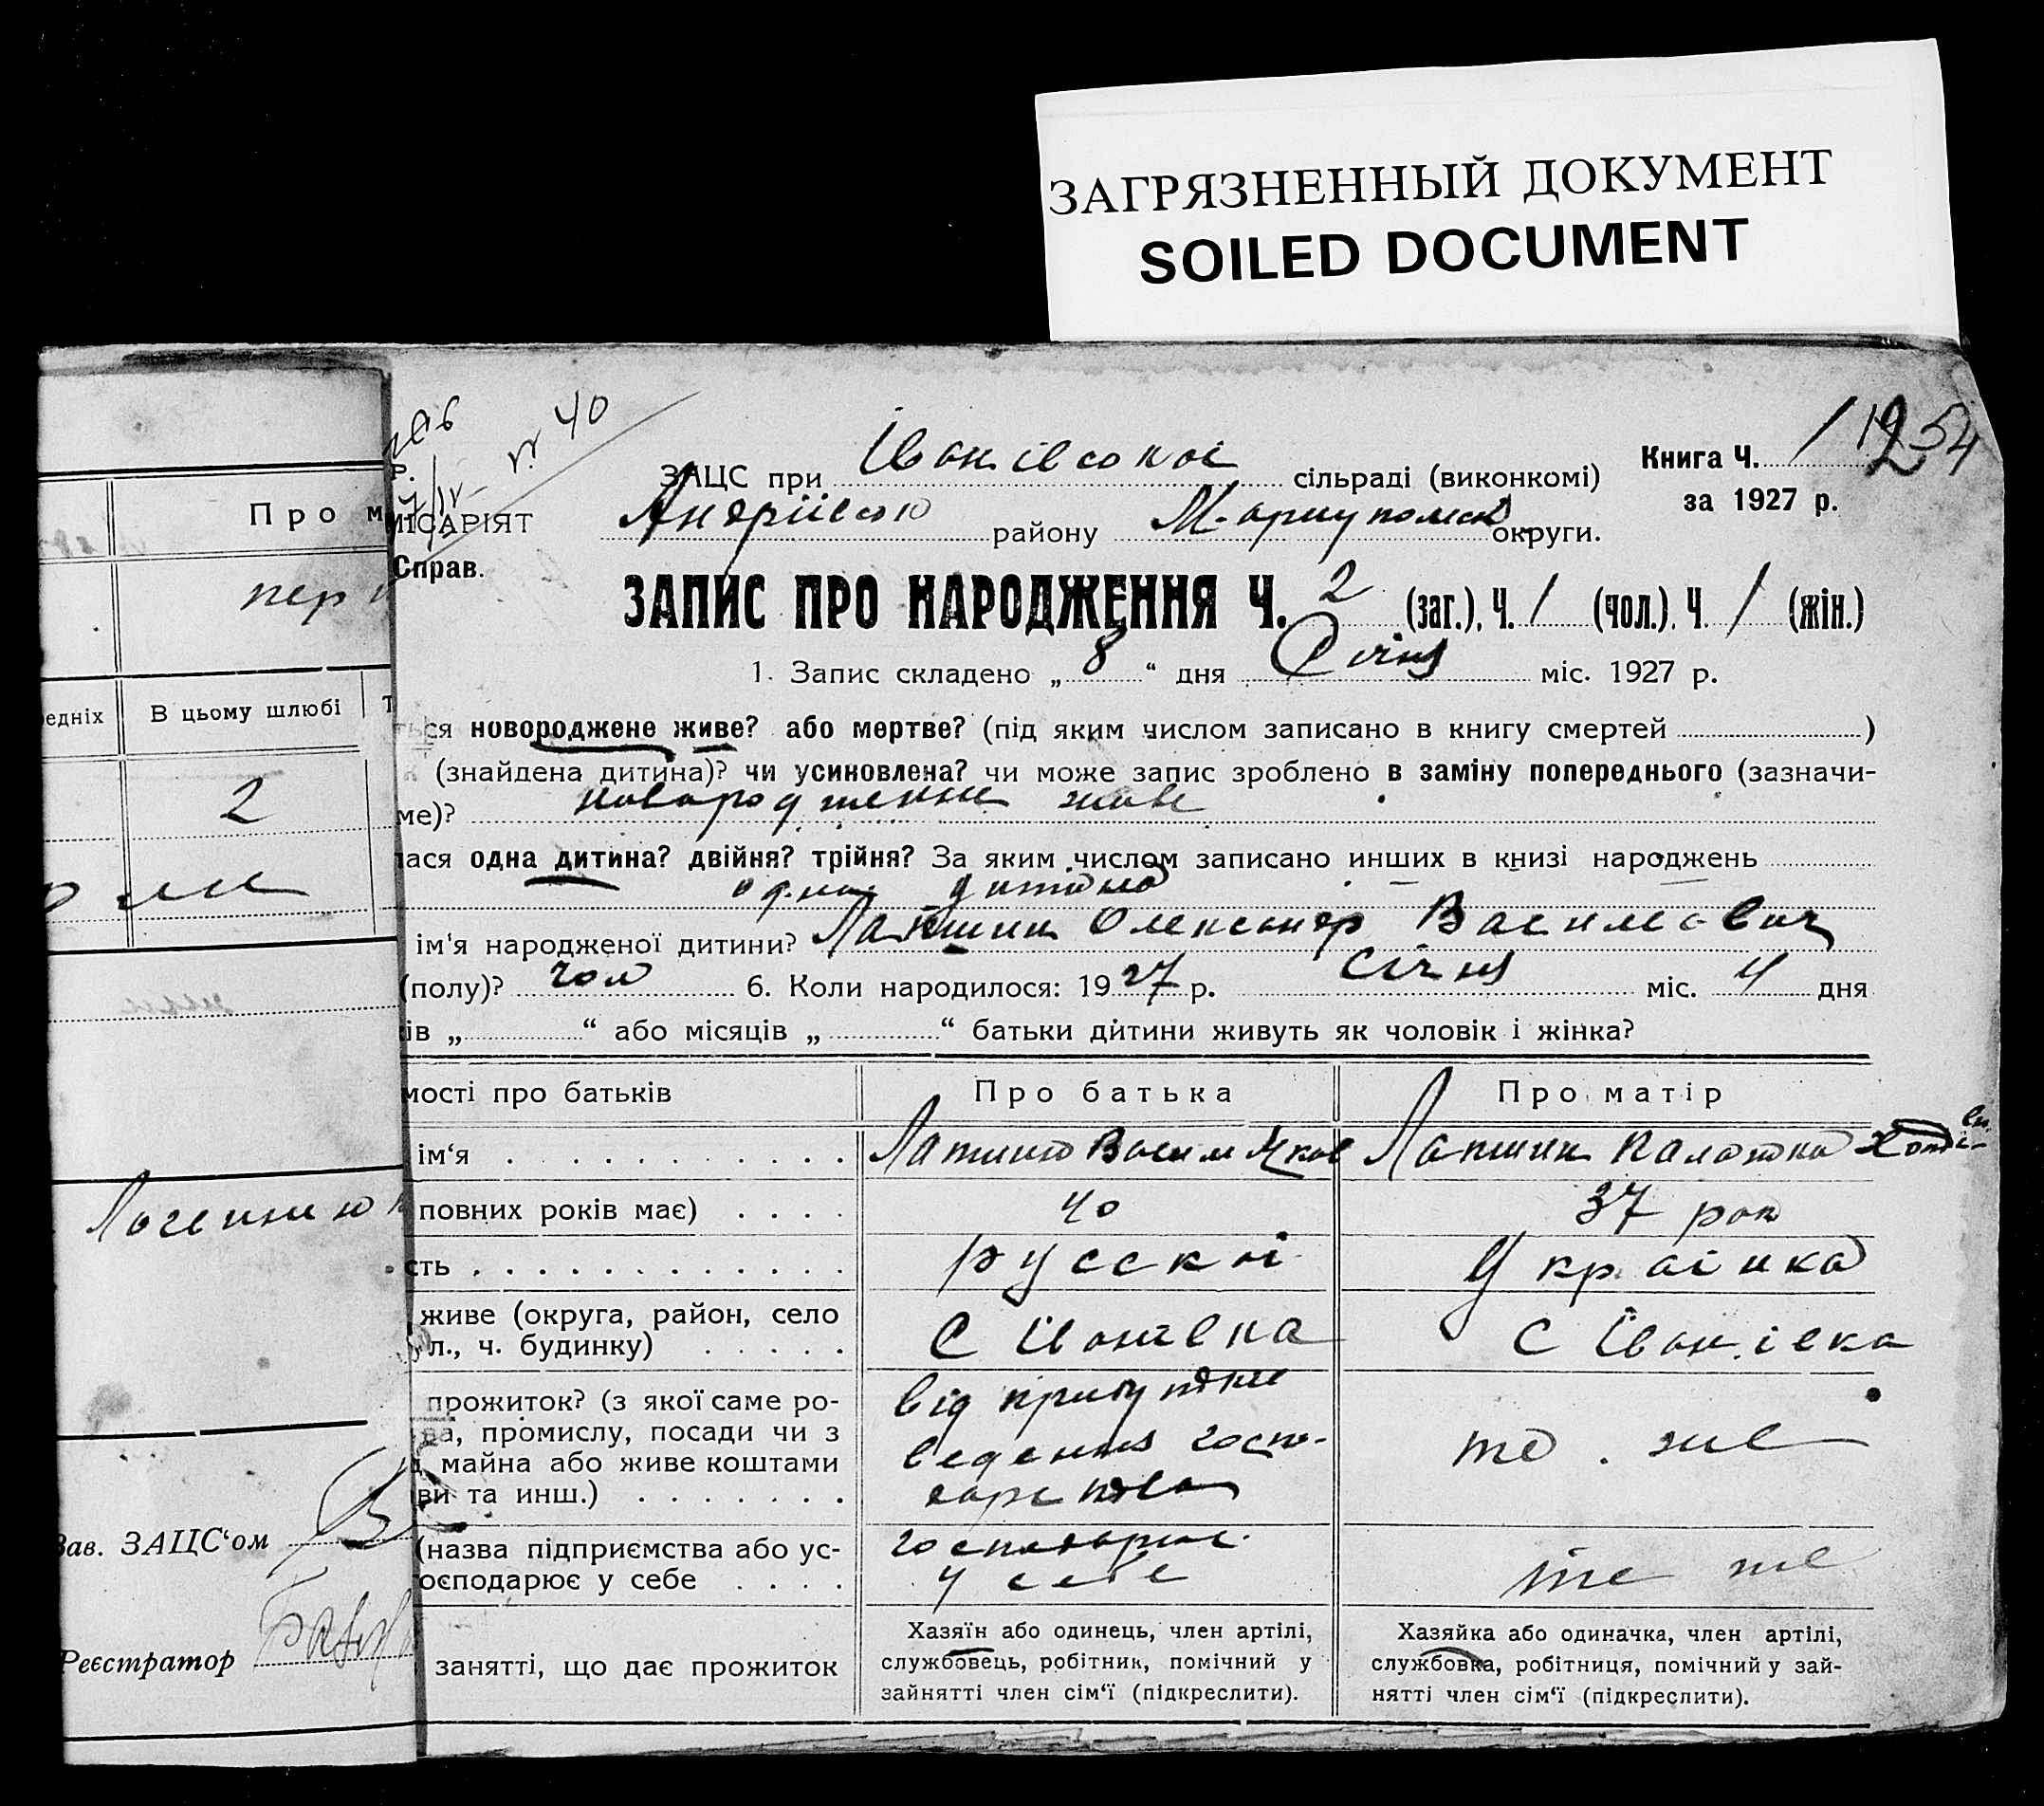 ЗАГРЯЗНЕННЫЙ ДОКУМЕНТ
SOILED DOCUMENT
№ 40
Книга Ч. 1
за 1927 р.
ЗАЦС при Іванівської сільраді (виконкомі)
МІСАРІЯТ
Андріївсько району Мариупольск округи.
Справ.
ЗАПИС ПРО НАРОДЖЕННЯ Ч. 2 (заг.), Ч. 1 (чол.), Ч. 1 (жін.)
1. Запис складено „ 8 “ дня Січня міс. 1927 р.
ться новороджене живе? або мертве? (під яким числом записано в книгу смертей )
(знайдена дитина)? чи усиновлена? чи може запис зроблено в заміну попереднього (зазначи-
ме)? новородженне живе
лася одна дитина? двійня? трійня? За яким числом записано инших в книзі народжень
одна дитина
ім'я народженої дитини? Лапшин Олександр Василович
(полу)? чол 6. Коли народилося: 1927 р. Січня міс. 4 дня
ів „ “ або місяців „ “ батьки дитини живуть як чоловік і жінка?
мості про батьків Про батька Про матір
ім'я Лапшин Васил Яков Лапшин
повних років має) 40 37 рок
сть русскі Українка
живе (округа, район, село
л., ч. будинку) С Іванівка С Іванівка
прожиток? (з якої саме ро-
ва, промислу, посади чи з
майна або живе коштами
ви та инш.) від прибутків
ведення госпо-
дарства
то же
(назва підприємства або ус-
осподарює у себе господарює
у себе
те же
занятті, що дає прожиток
Хазяїн або одинець, член артілі,
службовець, робітник, помічний у
зайнятті член сім'ї (підкреслити).
Хазяйка або одиначка, член артілі,
службовка, робітниця, помічний у зай-
нятті член сім'ї (підкреслити).
Про м
пер
едніх В цьому шлюбі Т
2
Зав. ЗАЦС'ом
Реєстратор